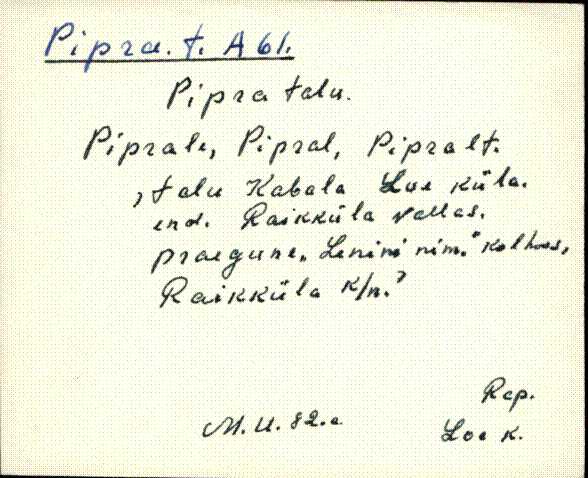 Pipra. t. A 61.
Pipra talu.
Piprale, Pipral, Pipralt.
, talu Kabala Loe küla.
end. Raikküla vallas.
praegune „Lenini nim.“ kolhoos,
Raikküla k/n.”
Rap.
M. U. 82. a
Loe k.